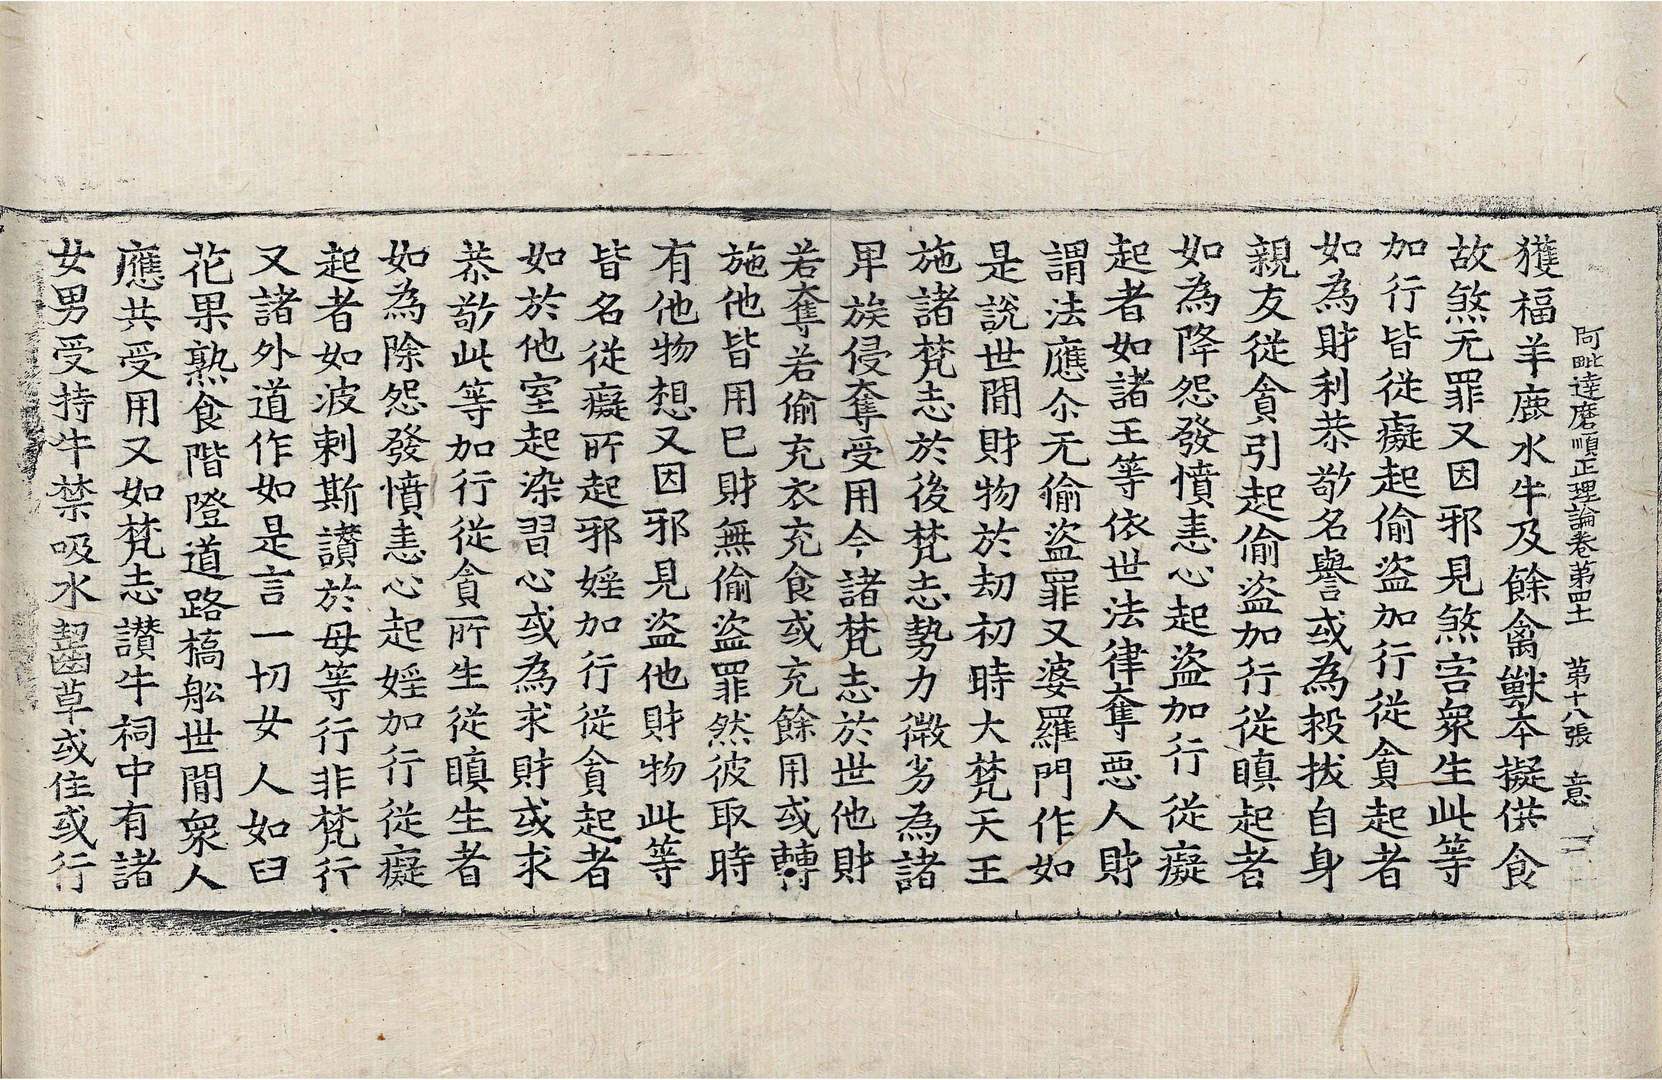 阿毗達磨順正理論卷第四十 第十八張 意
獲福羊鹿水牛及餘禽獸本擬供食
故煞无罪又因邪見煞害衆生此等
加行皆從癡起偷盜加行從貪起者
如為財利恭敬名譽或為救拔自身
親友從貪引起偷盜加行從瞋起者
如為降怨發憤恚心起盜加行從癡
起者如諸王等依世法律奪惡人財
謂法應尒无偷盜罪又婆羅門作如
是說世間財物於劫初時大梵天王
施諸梵志於後梵志勢力微劣為諸
卑族侵奪受用今諸梵志於世他財
若奪若偷充衣充食或充餘用或轉
施他皆用巳財無偷盜罪然彼取時
有他物想又因邪見盜他財物此等
皆名從癡所起邪婬加行從貪起者
如於他室起染習心或為求財或求
恭敬此等加行從貪所生從瞋生者
如為除怨發憤恚心起婬加行從癡
起者如波剌斯讃於母等行非梵行
又諸外道作如是言一切女人如臼
花果熟食階隥道路橋舩世間衆人
應共受用又如梵志讃牛祠中有諸
女男受持牛禁吸水齧草或住或行